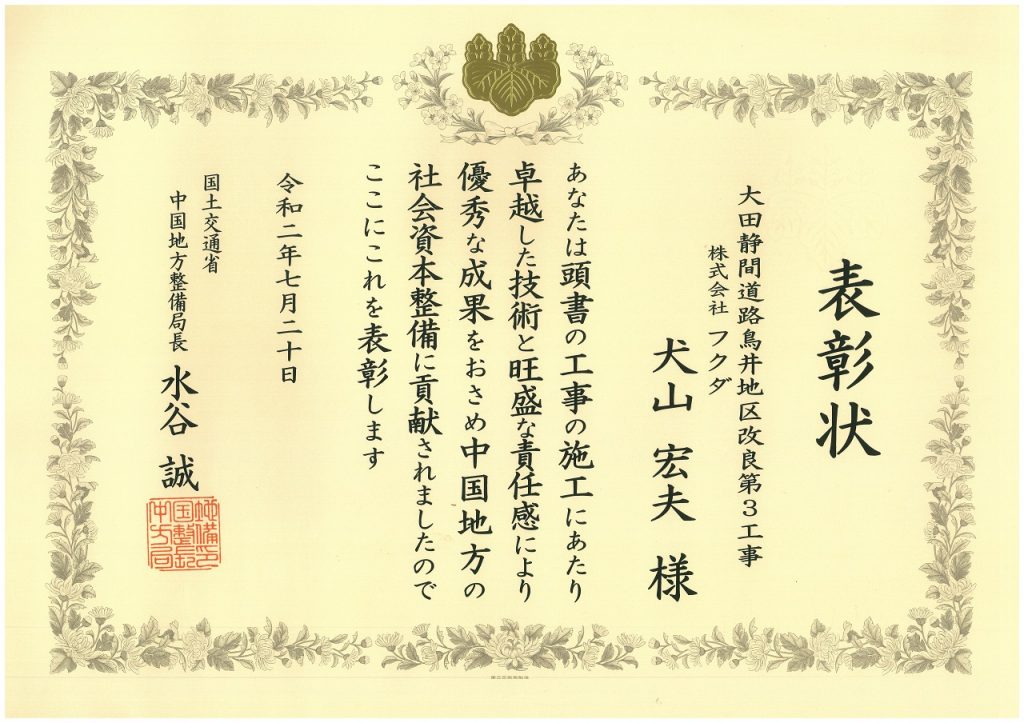 表彰状
大田静間道路鳥井地区改良第3工事
株式会社 フクダ
犬山 宏夫 様
あなたは頭書の工事の施工にあたり
卓越した技術と旺盛な責任感により
優秀な成果をおさめ中国地方の
社会資本整備に貢献されましたので
ここにこれを表彰します
令和二年七月二十日
国土交通省
中国地方整備局長 水谷 誠